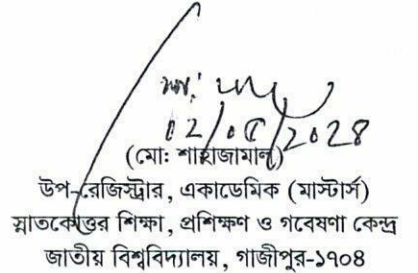 (মো: শাহাজামাল)
উপ-রেজিস্ট্রার, একাডেমিক (মাস্টার্স)
স্নাতকোত্তর শিক্ষা, প্রশিক্ষণ ও গবেষণা কেন্দ্র
জাতীয় বিশ্ববিদ্যালয়, গাজীপুর-১৭০৪